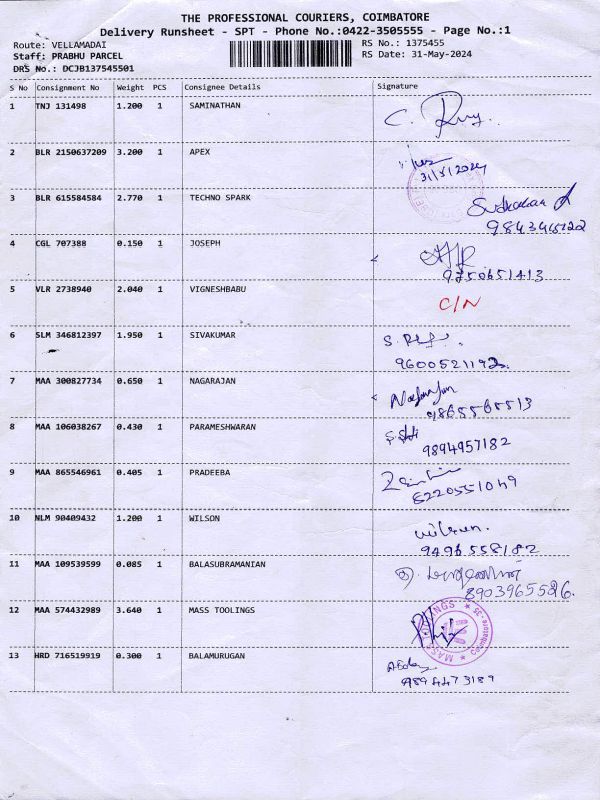 THE PROFESSIONAL COURIERS, COIMBATORE
Delivery Runsheet - SPT - Phone No.:0422-3505555 - Page No.:1
Route: VELLAMADAI RS No.: 1375455
Staff: PRABHU PARCEL RS Date: 31-May-2024
DRS No.: DCJB137545501
S No Consignment No Weight PCS Consignee Details Signature
1 TNJ 131498 1.200 1 SAMINATHAN
2 BLR 2150637209 3.200 1 APEX
31/5/2024
3 BLR 615584584 2.770 1 TECHNO SPARK
4 CGL 707388 0.150 1 JOSEPH
9750651413
5 VLR 2738940 2.040 1 VIGNESHBABU C/N
6 SLM 346812397 1.950 1 SIVAKUMAR
9600521192
7 MAA 300827734 0.650 1 NAGARAJAN Nagarajan
9865565513
8 MAA 106038267 0.430 1 PARAMESHWARAN
9894957182
9 MAA 865546961 0.405 1 PRADEEBA
6220551049
10 NLM 90409432 1.200 1 WILSON Wilson.
9496558182
11 MAA 109539599 0.085 1 BALASUBRAMANIAN
8903965526.
12 MAA 574432989 3.640 1 MASS TOOLINGS
MASS TOOLINGS ★ Coimbatore -35. ★
13 HRD 716519919 0.300 1 BALAMURUGAN
9894473189